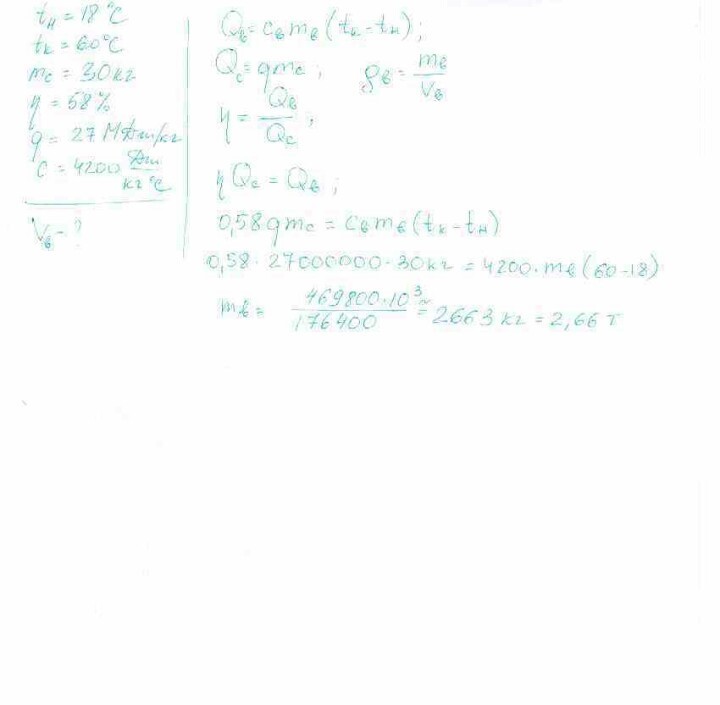 tн = 18 °C
tк = 60 °C
mc = 30 кг
η = 58 %
q = 27 МДж/кг
c = 4200 Дж/кг °C
Vв - ?
Qв = cв mв (tк - tн) ;
Qc = qmc ; ρв = mв/Vв
η = Qв/Qc ;
η Qc = Qв ;
0,58 qmc = cв mв (tк - tн)
0,58 · 27000000 · 30 кг = 4200 · mв (60 - 18)
mв = 469800·10³/176400 ≈ 2663 кг = 2,66 т